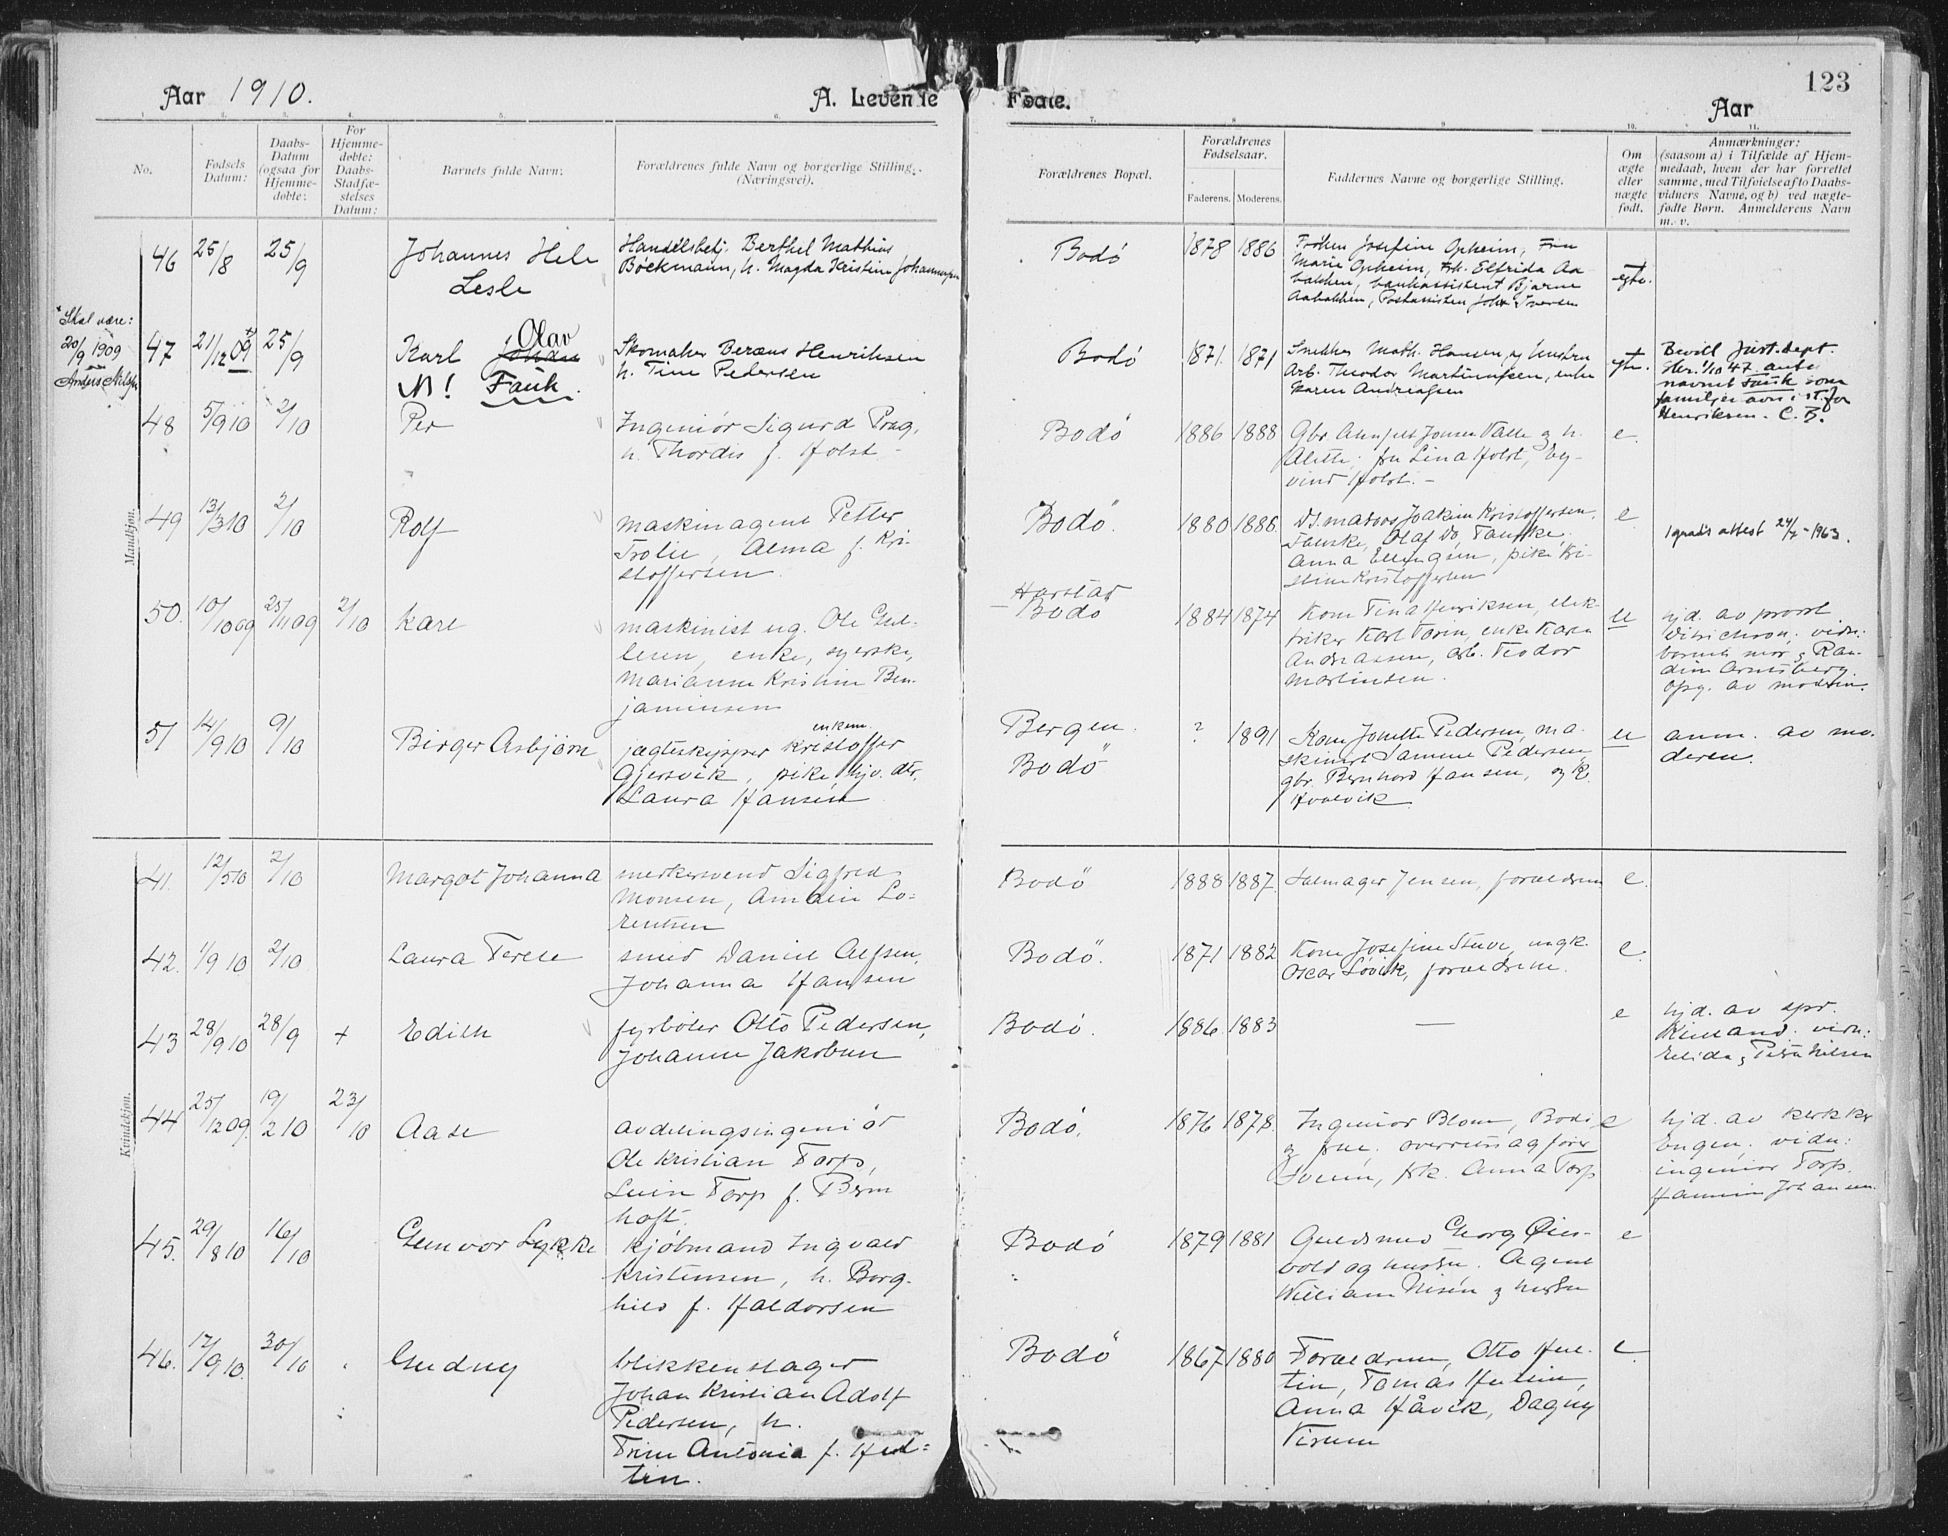 123
Aar 1910.
A. Levende Fødte.
Aar
1. 2. 3. 4. 5. 6. 7. 8. 9. 10. 11.
No.
Fødsels Datum:
Daabs-Datum (ogsaa for Hjemme-døbte:
For Hjemme-døbte: Daabs-Stadfæ-stelses Datum:
Barnets fulde Navn:
Forældrenes fulde Navn og borgerlige Stilling. (Næringsvei).
Forældrenes Bopæl.
Forældrenes Fødselsaar.
Faderens. Moderens.
Faddernes Navne og borgerlige Stilling.
Om ægte eller uægte født.
Anmærkninger:
(saasom a) i Tilfælde af Hjem-
medaab, hvem der har forrettet
samme, med Tilføielse af to Daabs-
vidners Navne, og b) ved uægte-
fødte Børn. Anmelderens Navn
m. v.
Mandkjøn.
46 25/8 25/9 Johannes
Lesle
Handelsbetj. Berthel Mathias
Böckmann, h. Magda Kristine Johannessen
Bodó 1878 1886
Frøken Josefine Opheim, Fru
Marie Opheim, Frk. Elfrida Aa
bakken, bankassistent Bjarne
Aabakken, Postassisten Johs Iversen
egte.
Skal være:
20/9 1909
Anders Nilsen
47 21/12 09 25/9 Karl Johan Olav
N! Fauk.
Skomaker Beræus Henriksen
h. Tine Pedersen
Bodó 1871. 1871
Snekker Math. Hansen og hustru
Arb. Theodor Martinussen, enke
Karen Andreassen
egte.
Bevill Just.dept.
1/10 47. anta
navnet Fauk som
familjenavn i st. for
Henriksen. C.B.
48 5/9 10 2/10 Per
Ingeniør Sigurd Prag,
h. Thordis f. Holst
Bodó 1886 1888
Jonsen Valle og h.
Alette; fru Lina Holst, Ey-
vind Holst.
e.
49 13/3 10 2/10 Rolf
maskinagent Petter
Trolie, Alma f. Kri-
stoffersen.
Bodö. 1880 1886.
Joakim Kristoffersen,
Fauske, Olaf Do, Fauske.
Anna Ellingsen, pike Kri-
stine Kristoffersen
e
1963.
50. 10/10 09 25/1 09 2/10 Kare
maskinist ug. Ole
enke, syerske,
Marianne Kristine Ben-
jaminsen
Harstad
Bodó 1884 1874
Kone Tina Henriksen, elek-
triker Karl Torin, enke Karen
Andreassen, arb. Teodor
Martinsen.
u
hjd. av provst
vidn:
barnets mor og Ran-
din Arntsberg
opg. av moderen.
51 14/9 10 9/10 Birger Asbjørn
enkem.
jægteskipper Kristoffer
Gjersvik, pike hjv. dtr.
Laura Hansen
Bergen.
Bodö ? 1891
Kone Jonette Pedersen, ma-
skinist Pedersen,
gbr. Bernhard Hansen, og K.
Hvalvik.
u anm. av mo-
deren.
Kvindekjøn.
41. 12/5 10 2/10 Margot Johanna
murersvend Sigfred
Monsen, Amalie Lo-
rentsen
Bodö 1888 1887.
Salmager Jensen, forældrene
e.
42. 1/9 10 2/10 Laura Terese
smed Daniel Alfsen,
Johanna Hansen
Bodö. 1871 1882
Kone Josefine Stuve, ungk.
Oscar Løvik, forældrene.
e.
43 28/9 10 28/9 + Edith
fyrbøter Otto Pedersen,
Johanne Jakobsen
Bodó. 1886. 1883 —
e
hjd. av spr.
Kielland. vidn:
Elida og Petra Nilsen
44 25/12 09. 19/2 10 23/10 Aase
avdelingsingeniør
Ole Kristian Torp,
Torp f. Bern
hoft.
Bodó. 1876 1878.
Ingeniør Blom, Bodø
og frue, overretssagfører
frk. Anna Torp
e
hjd. av kirkesr
Engen. vidn:
ingeniør Torp.
Johansen.
45. 29/8 10 16/10 Gunvor Lykke
kjøbmand Ingvald
Kristensen, h. Borg-
hild f. Haldorsen
Bodó 1879 1881
Guldsmed Georg Øies-
vold og hustru. Agent
William Nisén og hustru
e
46. 17/9 10. 30/10 Gudny
blikkenslager
Johan Kristian Adolf
Pedersen, h.
Trine Antonia f. Hel-
tin.
Bodö 1867 1880
Forældrene, Otto Hel-
tin, Tomas Heltin,
Anna Håvik, Dagny
e.